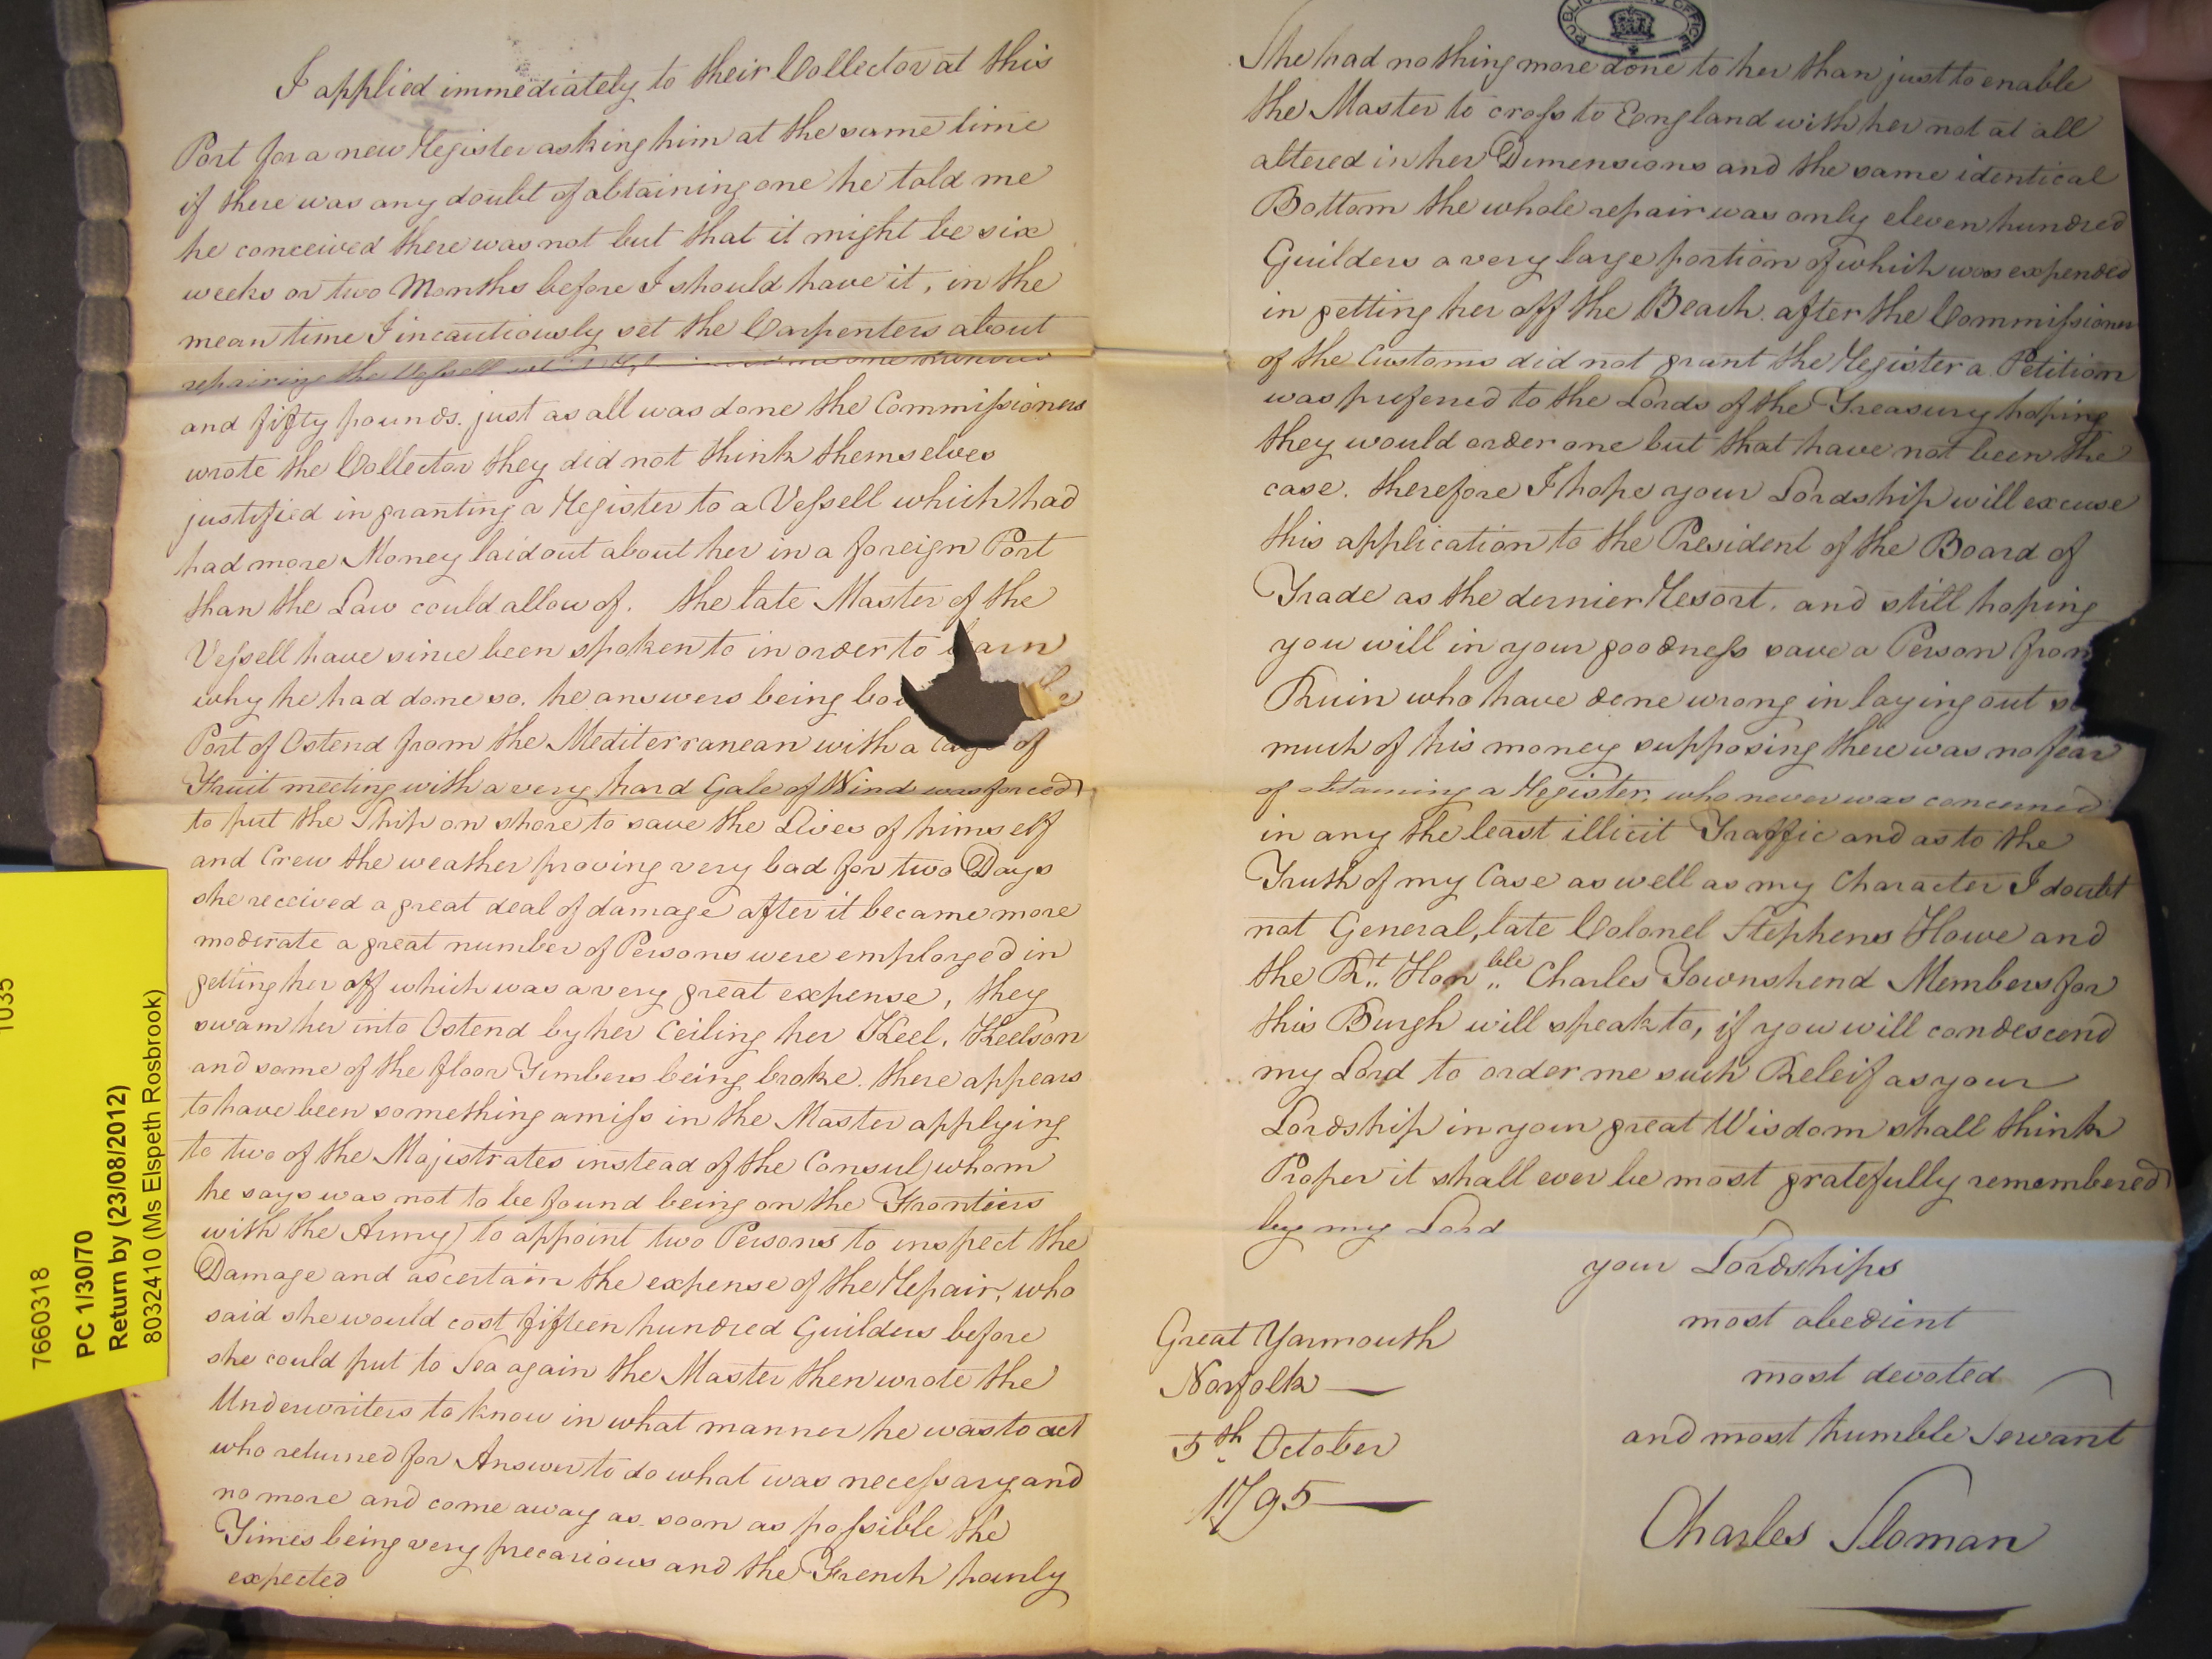 I applied immediately to their Collector at this
Port for a new Register asking him at the same time
if there was any doubt of obtaining one he told me
he conceived there was not but that it might be six
weeks or two Months before I should have it, in the
mean time I incautiously set the Carpenters about
repairing the Vessell one hundred
and fifty pounds. just as all was done the Commissioners
wrote the Collector they did not think themselves
justified in granting a Register to a Vessell which had
had more Money laid out about her in a foreign Port
than the Law could allow of. the late Master of the
Vessell have since been spoken to in order to learn
why he had done so. he answers being
Port of Ostend from the Mediterranean with a of
Fruit meeting with a very hard Gale of Wind was forced
to put the Ship on shore to save the Lives of himself
and Crew the weather proving very bad for two Days
she received a great deal of damage after it became more
moderate a great number of Persons were employed in
getting her off which was a very great expense, they
swam her into Ostend by her Ceiling her Keel, Keelson
and some of the floor Timbers being broke. there appears
to have been something amiss in the Master applying
to two of the Majistrates instead of the Consul (whom
he says was not to be found being on the Frontiers
with the Army) to appoint two Persons to inspect the
Damage and ascertain the expense of the Repair, who
said she would cost fifteen hundred Guilders before
she could put to Sea again the Master then wrote the
Underwriters to know in what manner he was to act
who returned for Answer to do what was necessary and
no more and come away as soon as possible the
Times being very precarious and the French hourly
expected
She had nothing more done to her than just to enable
the Master to cross to England with her not at all
altered in her Dimensions and the same identical
Bottom the whole repair was only eleven hundred
Guilders a very large portion of which was expended
in getting her off the Beach. after the Commissioners
of the Customs did not grant the Register a Petition
was prefered to the Lords of the Treasury hoping
they would order one but that have not been the
case. therefore I hope your Lordship will excuse
this application to the President of the Board of
Trade as the dernier Resort. and still hoping
you will in your goodness save a Person from
Ruin who have done wrong in laying out so
much of his money supposing there was no fear
of obtaining a Register, who never was concerned
in any the least illicit Traffic and as to the
Truth of my Case as well as my Character I doubt
not General, late Colonel Stephens Howe and
the Rt. Honble. Charles Townshend Members for
this Burgh will speak to, if you will condescend
my Lord to order me such Releif as your
Lordship in your great Wisdom shall think
Proper it shall ever be most gratefully remembered
by my Lord
your Lordships
most obedient
most devoted
and most humble Servant
Charles Sloman
Great Yarmouth
Norfolk —
5th. October
1795 —
PUBLIC RECORD OFFICE
7660318
1035
PC 1/30/70
Return by (23/08/2012)
8032410 (Ms Elspeth Rosbrook)